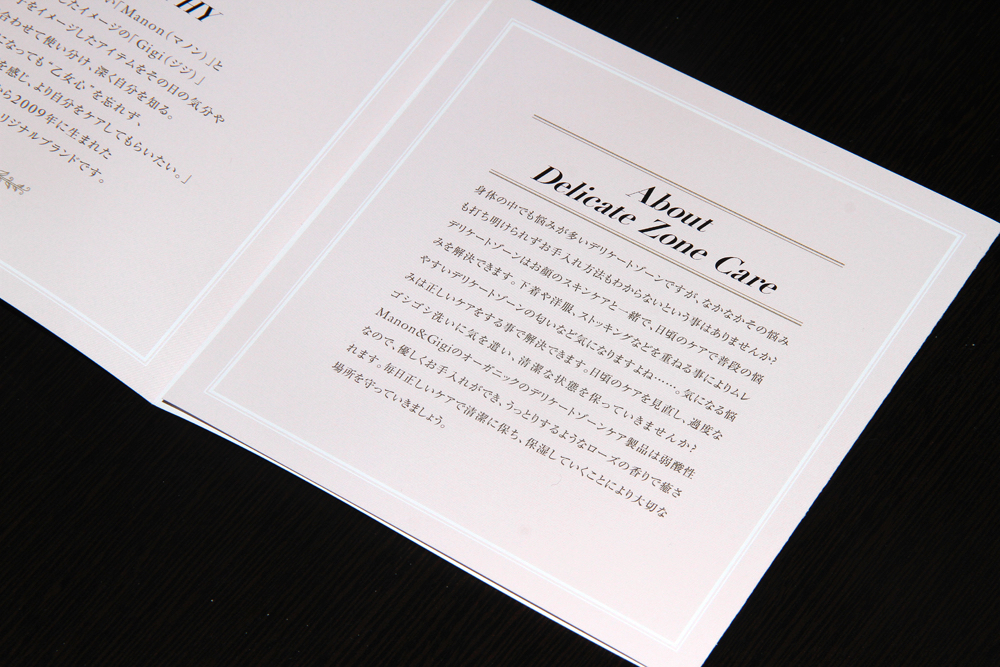 HY
「Manon(マノン)」と
したイメージの「Gigi(ジジ)」
をイメージしたアイテムをその日の気分や
合わせて使い分け、深く自分を知る。
になっても"乙女心"を忘れず、
を感じ、より自分をケアしてもらいたい。」
から2009年に生まれた
リジナルブランドです。
About
Delicate Zone Care
身体の中でも悩みが多いデリケートゾーンですが、なかなかその悩み
も打ち明けられずお手入れ方法もわからないという事はありませんか?
デリケートゾーンはお顔のスキンケアと一緒で、日頃のケアで普段の悩
みを解決できます。下着や洋服、ストッキングなどを重ねる事によりムレ
やすいデリケートゾーンの匂いなど気になりますよね……。気になる悩
みは正しいケアをする事で解決できます。日頃のケアを見直し、過度な
ゴシゴシ洗いに気を遣い、清潔な状態を保っていきませんか?
Manon&Gigiのオーガニックのデリケートゾーンケア製品は弱酸性
なので、優しくお手入れができ、うっとりするようなローズの香りで癒さ
れます。毎日正しいケアで清潔に保ち、保湿していくことにより大切な
場所を守っていきましょう。